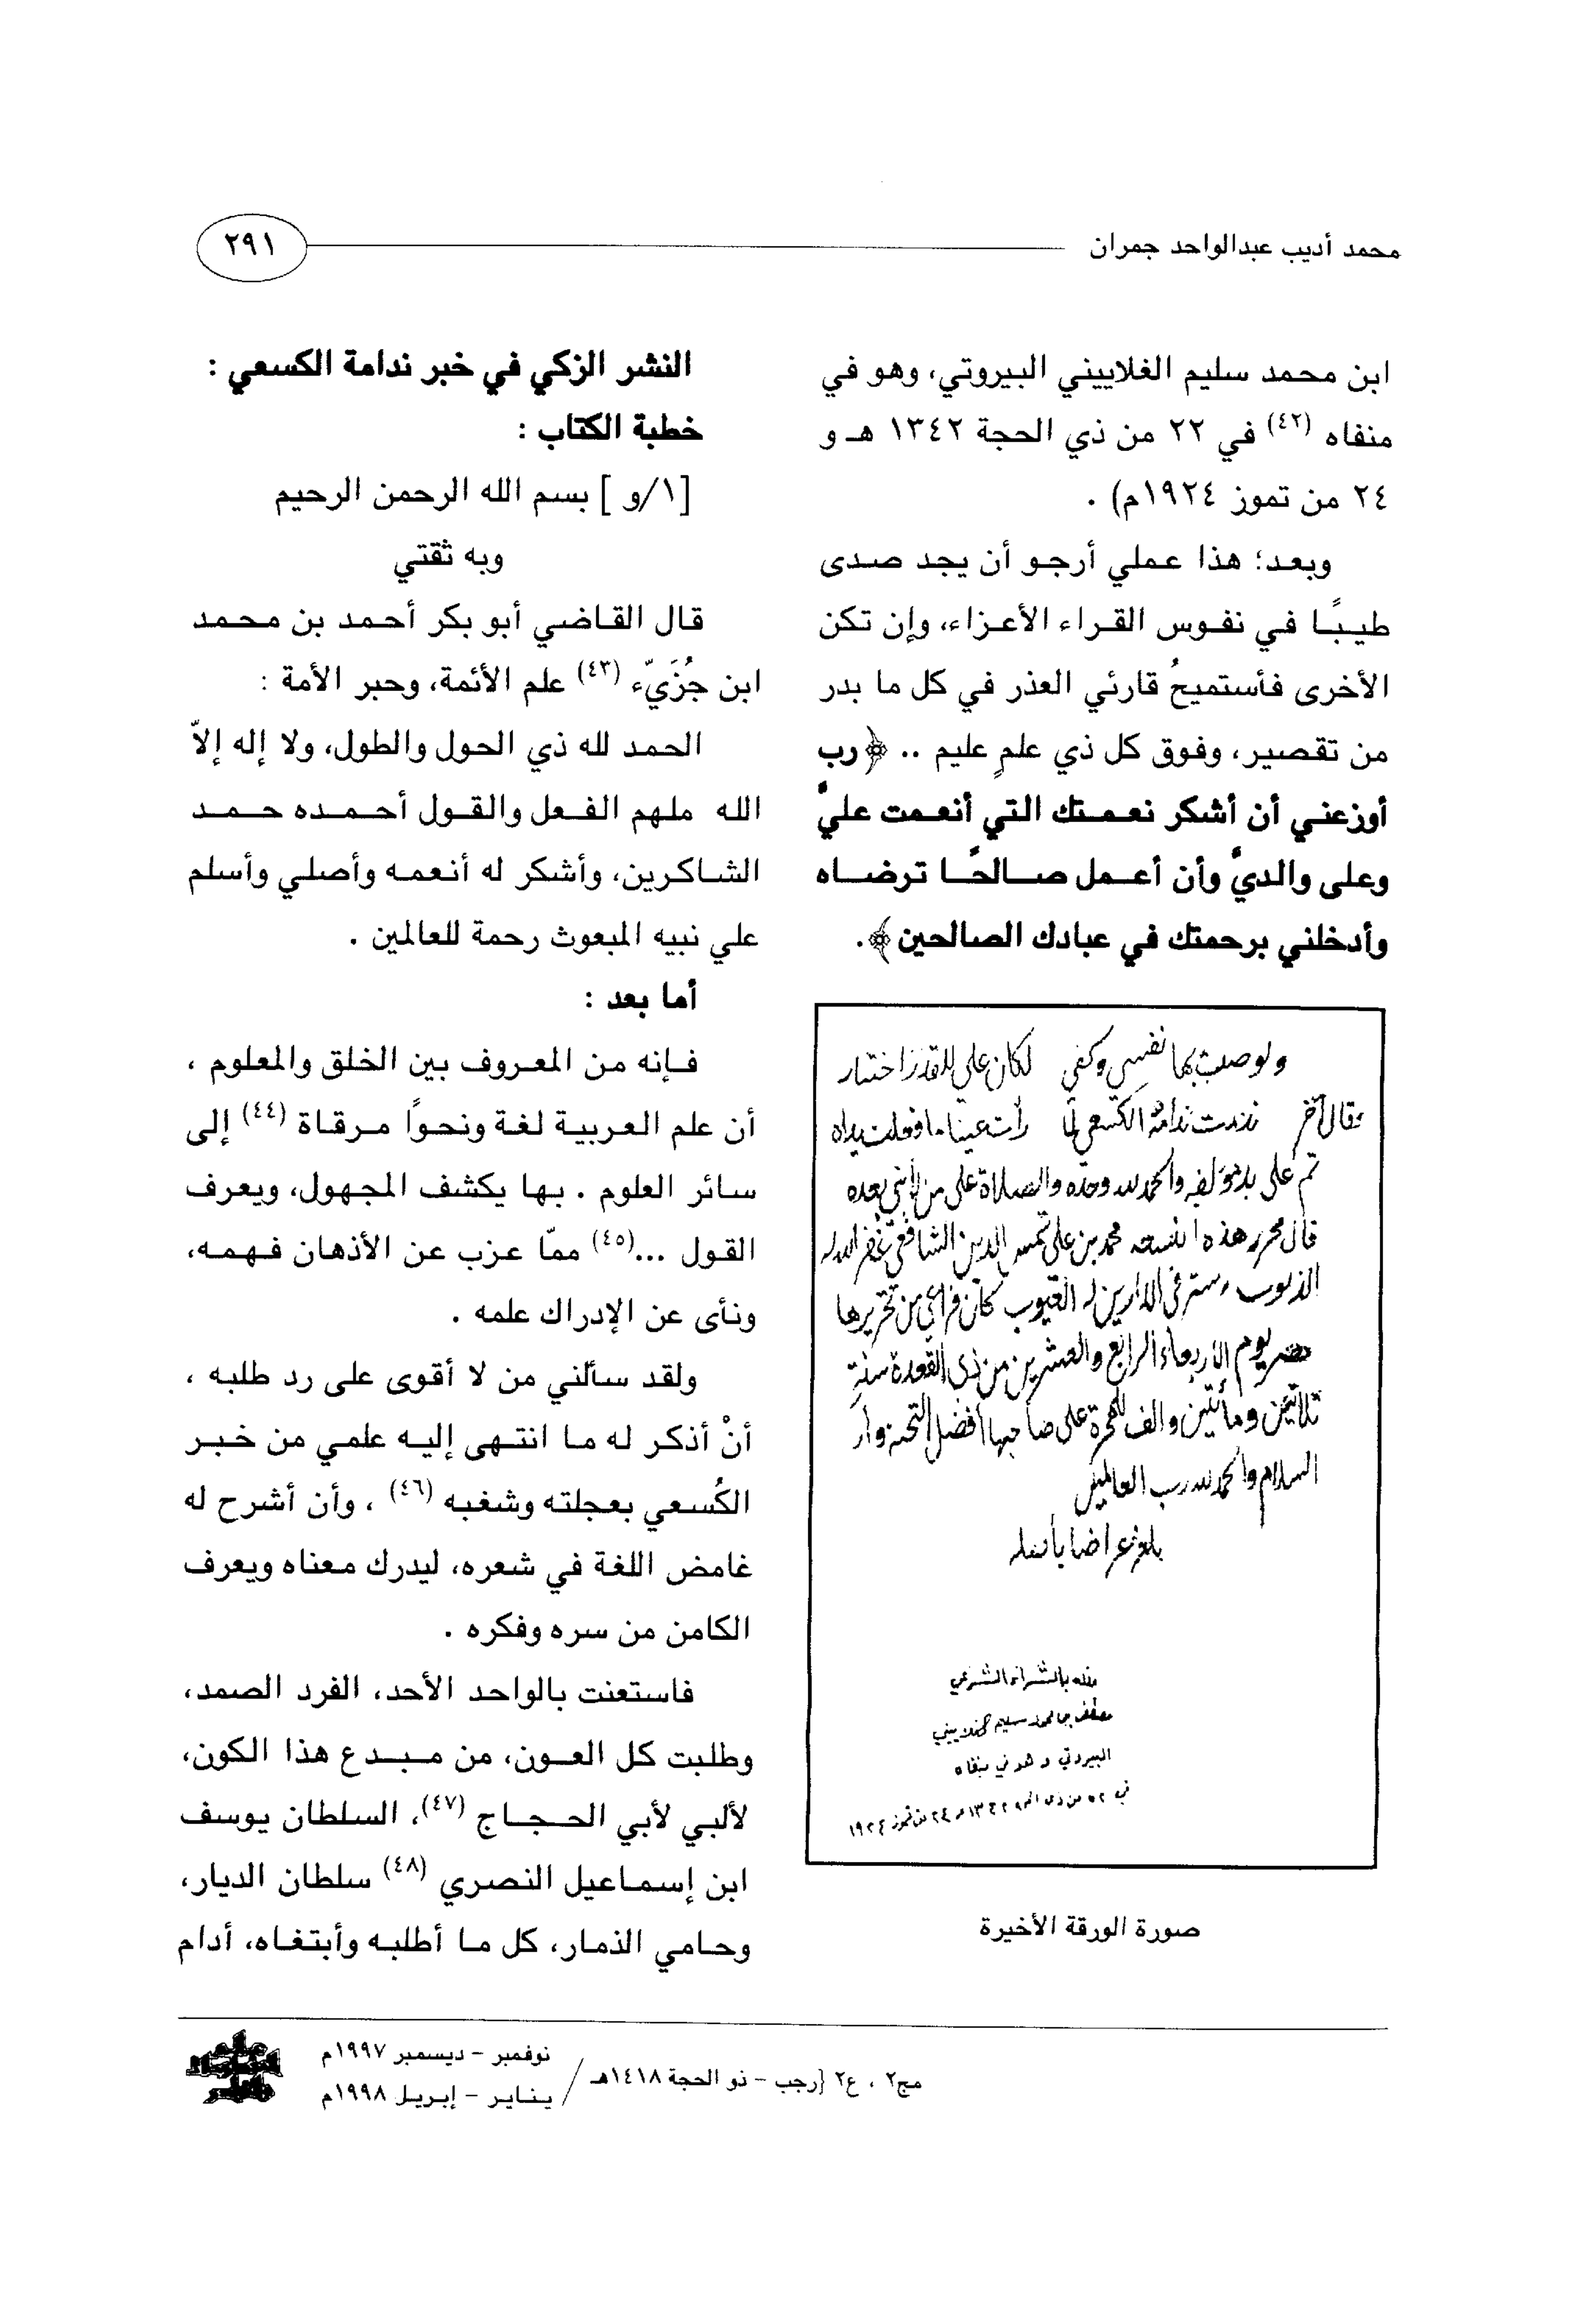 محمد أديب عبدالواحد جمران
٢٩١
ابن محمد سليم الغلاييني البيروتي، وهو في
منفاه (٤٢) في ٢٢ من ذي الحجة ١٣٤٢ هـ و
٢٤ من تموز ١٩٢٤م) .
وبعد؛ هذا عملي أرجو أن يجد صدى
طيبًا في نفوس القراء الأعزاء، وإن تكن
الأخرى فأستميحُ قارئي العذر في كل ما بدر
من تقصير، وفوق كل ذي علمٍ عليم .. ﴿رب
أوزعني أن أشكر نعمتك التي أنعمت عليَّ
وعلى والديَّ وأن أعمل صالحًا ترضاه
وأدخلني برحمتك في عبادك الصالحين﴾.
ولو صلت بها نفسي وكفي لكان علي للقدر اختيار
وقال آخر ندمت ندامة الكسعي لما رأت عيناه ما فعلت يداه
تم على يد مؤلفه والحمد لله وحده والصلاة على من لا نبي بعده
قال محرر هذه النسخة محمد بن علي شمس الدين الشافعي غفر الله له
الذنوب وستر في الدارين له العيوب كان فراغي من تحريرها
عصر يوم الأربعاء الرابع والعشرين من ذي القعدة سنة
ثلاثين ومأتين والف للهجرة على صاحبها أفضل التحية و
السلام والحمد لله رب العالمين
بالشراء الشرعي
سليم
البيروتي وهو في منفاه
في من ذي ١٣٤٢ ٢٤ من تموز ١٩٢٤
صورة الورقة الأخيرة
النشر الزكي في خبر ندامة الكسعي :
خطبة الكتاب :
[١/و ] بسم الله الرحمن الرحيم
وبه ثقتي
قال القاضي أبو بكر أحمد بن محمد
ابن جُزَيّء (٤٣) علم الأئمة، وحبر الأمة :
الحمد لله ذي الحول والطول، ولا إله إلاّ
الله ملهم الفعل والقول أحمده حمد
الشاكرين، وأشكر له أنعمه وأصلي وأسلم
علي نبيه المبعوث رحمة للعالمين .
أما بعد :
فإنه من المعروف بين الخلق والمعلوم ،
أن علم العربية لغة ونحوًا مرقاة (٤٤) إلى
سائر العلوم . بها يكشف المجهول، ويعرف
القول ...(٤٥) ممّا عزب عن الأذهان فهمه،
ونأى عن الإدراك علمه .
ولقد سألني من لا أقوى على رد طلبه ،
أنْ أذكر له ما انتهى إليه علمي من خبر
الكُسعي بعجلته وشغبه (٤٦) ، وأن أشرح له
غامض اللغة في شعره، ليدرك معناه ويعرف
الكامن من سره وفكره .
فاستعنت بالواحد الأحد، الفرد الصمد،
وطلبت كل العون، من مبدع هذا الكون،
لألبي لأبي الحجاج (٤٧)، السلطان يوسف
ابن إسماعيل النصري (٤٨) سلطان الديار،
وحامي الذمار، كل ما أطلبه وأبتغاه، أدام
مج٢ ، ع٢ {رجب – ذو الحجة ١٤١٨هـ / نوفمبر – ديسمبر ١٩٩٧م
يناير – إبريل ١٩٩٨م